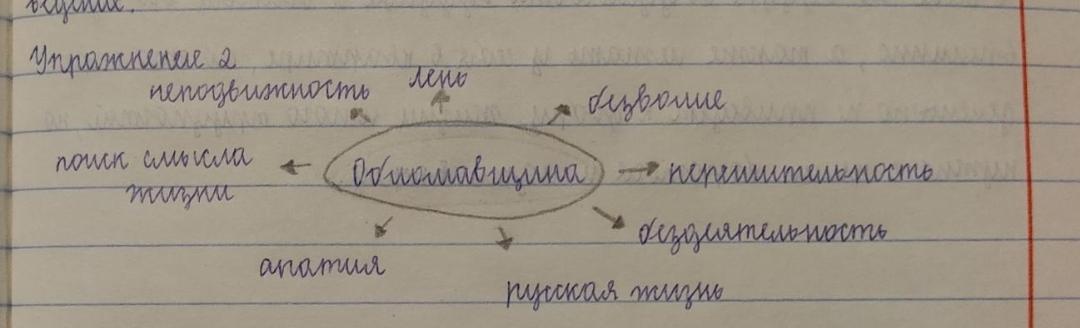 Упражнение 2
неподвижность
лень
безволие
поиск смысла
жизни
Обломавщина
нерешительность
бездеятельность
апатия
русская жизнь